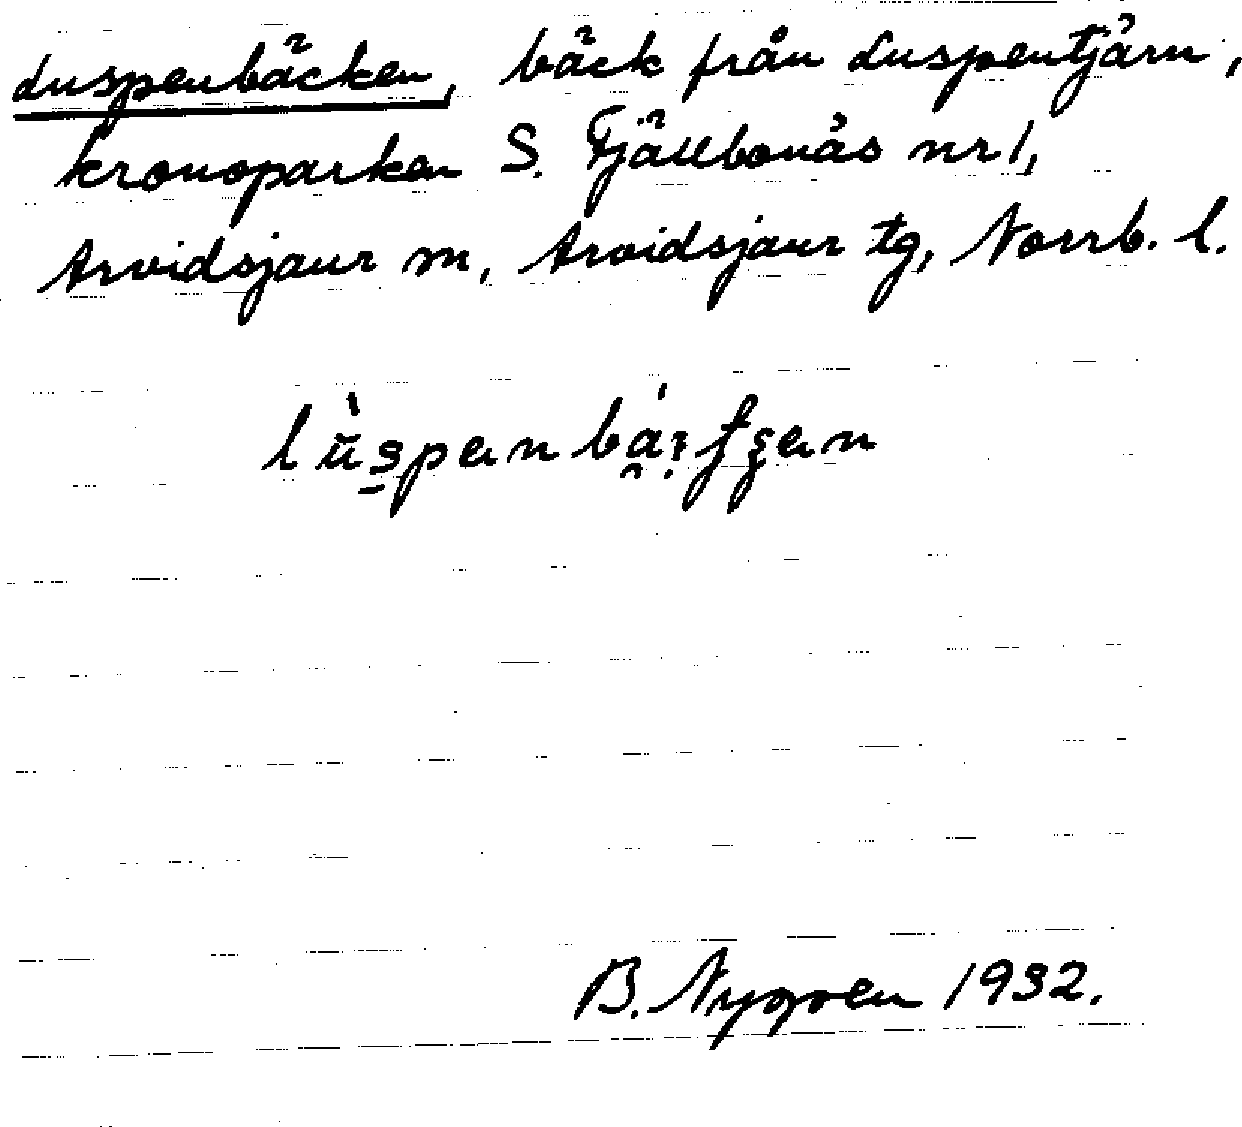 Luspenbäcken, bäck från Luspentjärn,
kronoparken S. Fjällbonäs nr 1,
Arvidsjaur m, Arvidsjaur tg, Norrb. l.
B. Nygren 1932.